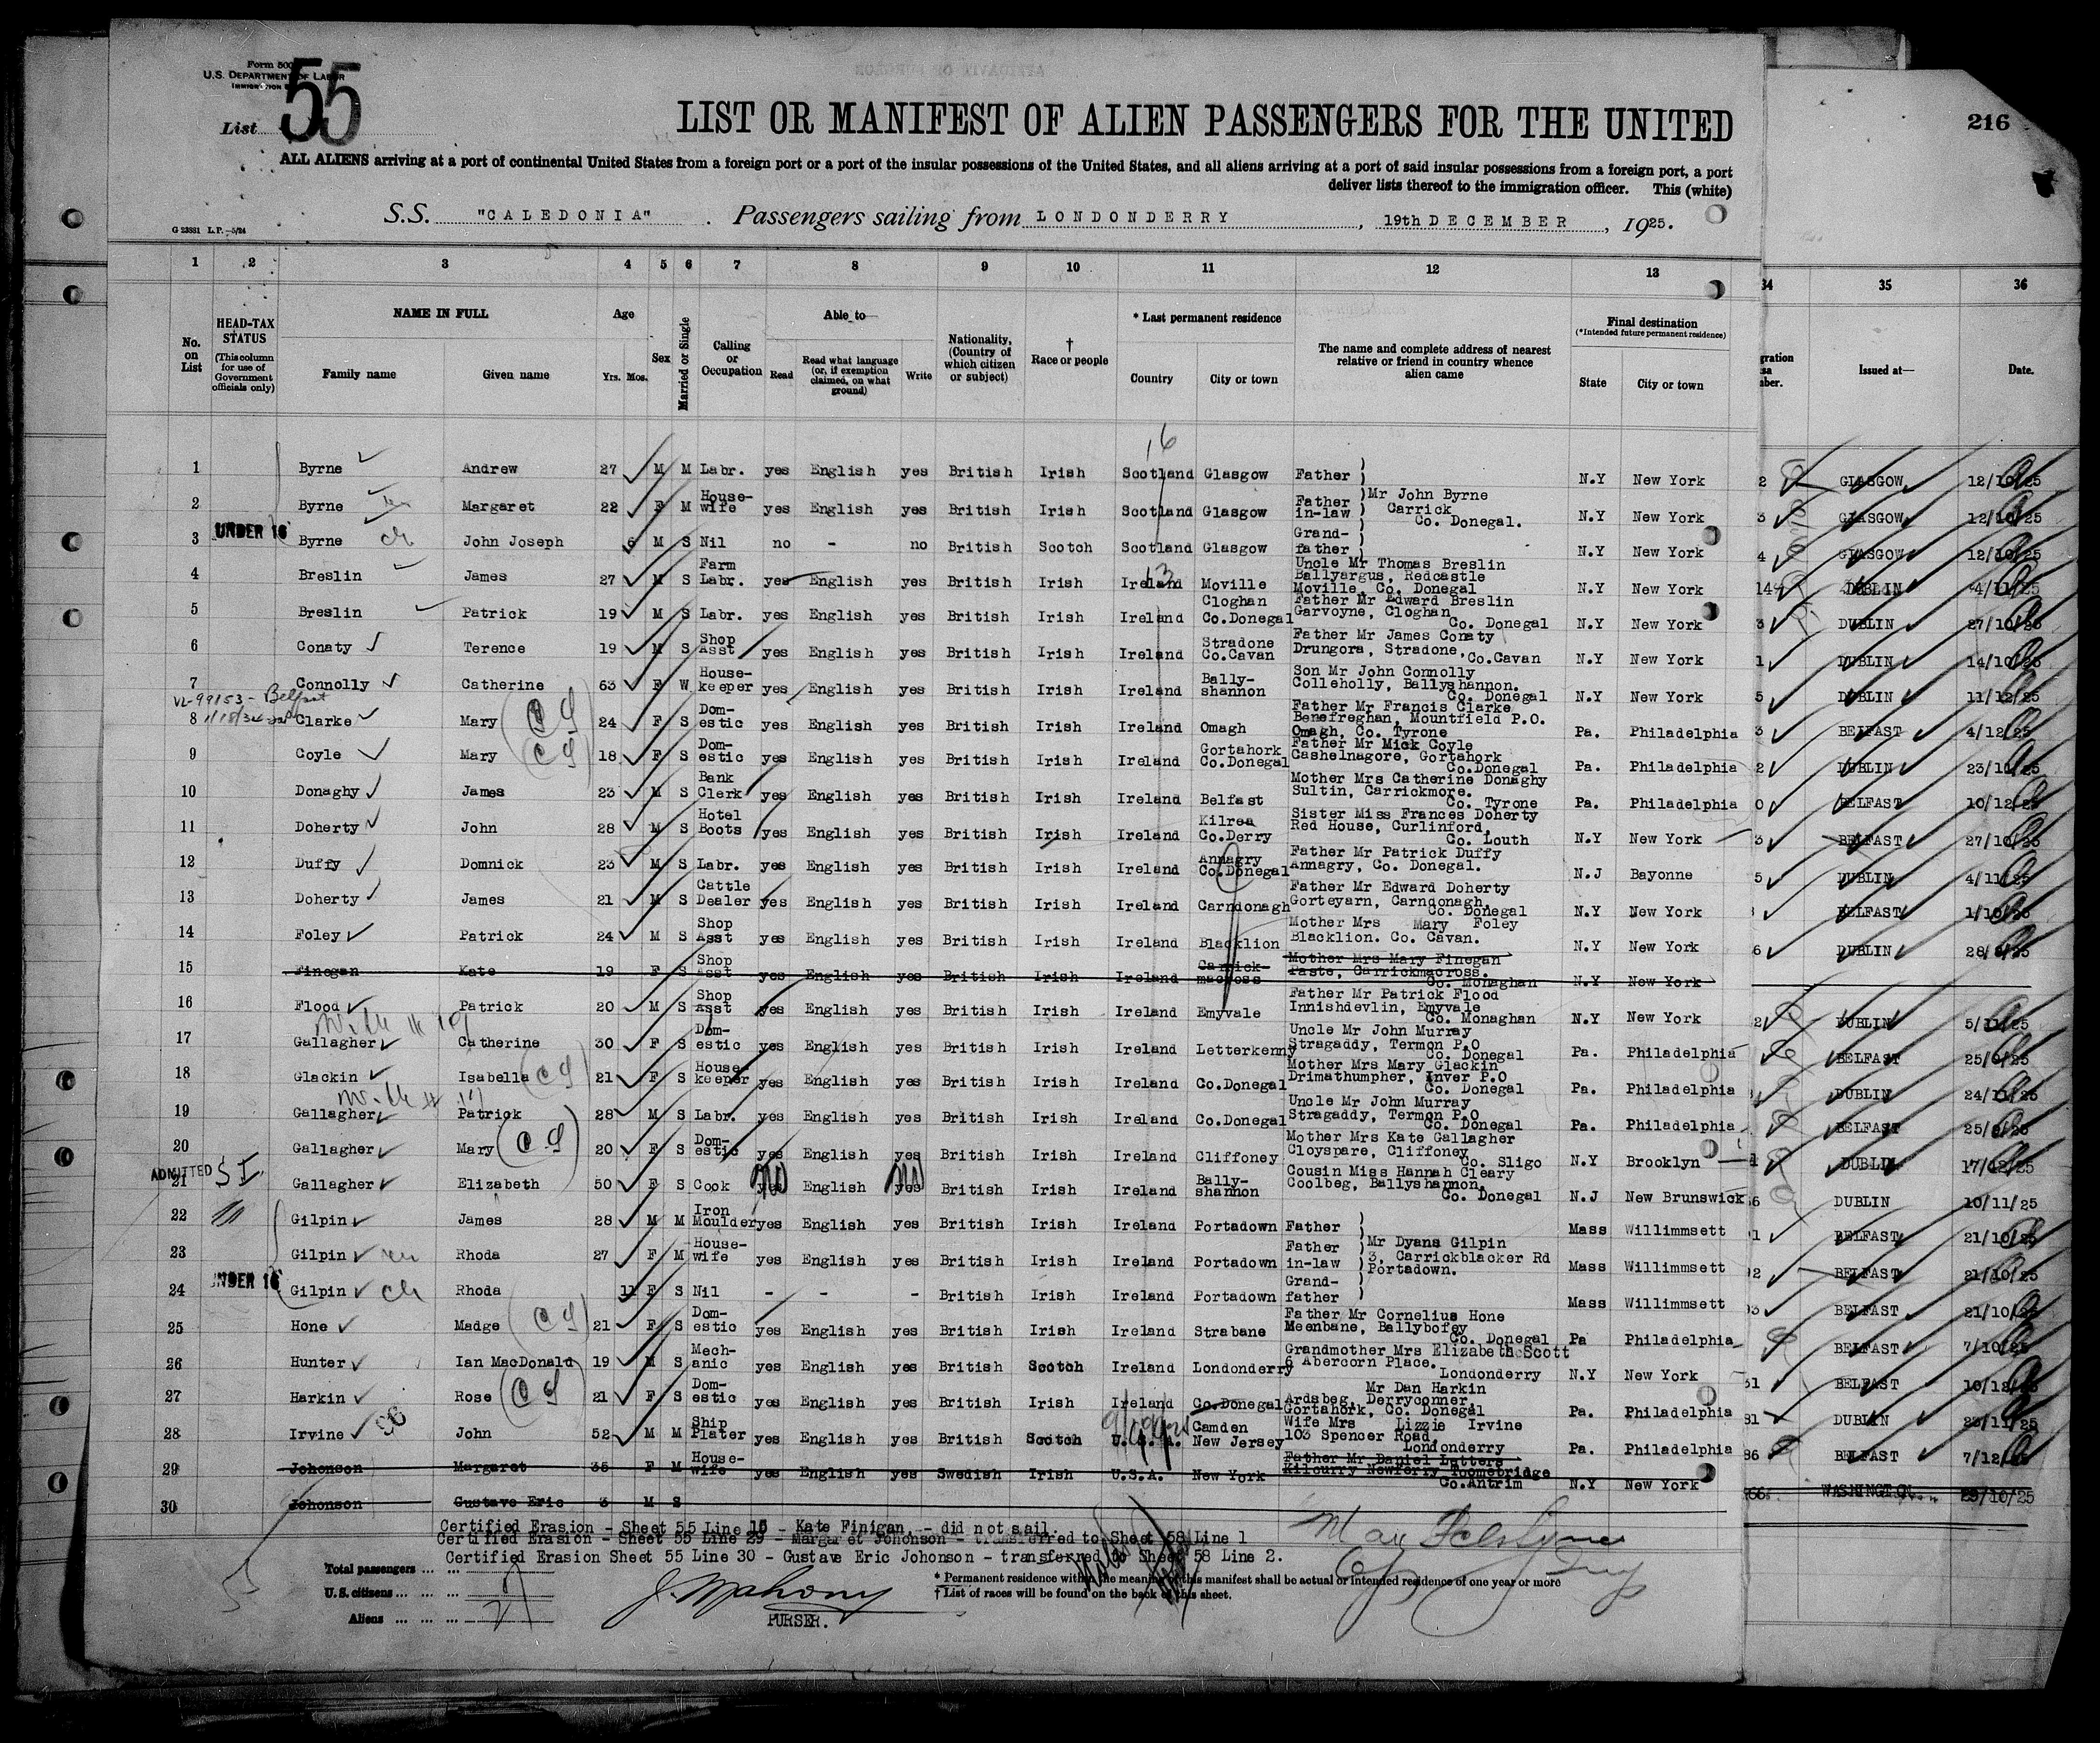 Form 500
U.S. DEPARTMENT OF LABOR
IMMIGRATION
List 55
LIST OR MANIFEST OF ALIEN PASSENGERS FOR THE UNITED
216
ALL ALIENS arriving at a port of continental United States from a foreign port or a port of the insular possessions of the United States, and all aliens arriving at a port of said insular possessions from a foreign port, a port
deliver lists thereof to the immigration officer. This (white)
S.S. "CALEDONIA" . Passengers sailing from LONDONDERRY , 19th DECEMBER , 1925.
G 23881 L.P.—5/24
1 2 3 4 5 6 7 8 9 10 11 12 13 34 35 36
No. on List
HEAD-TAX STATUS (This column for use of Government officials only)
NAME IN FULL
Family name Given name
Age Yrs. Mos.
Sex
Married or Single
Calling or Occupation
Able to
Read Read what language (or, if exemption claimed, on what ground) Write
Nationality, (Country of which citizen or subject)
† Race or people
* Last permanent residence
Country City or town
The name and complete address of nearest relative or friend in country whence alien came
Final destination (*Intended future permanent residence)
State City or town
Issued at— Date.
16
1 Byrne Andrew 27 M M Labr. yes English yes British Irish Scotland Glasgow Father N.Y New York 2 GLASGOW 12/10/25
2 Byrne Margaret 22 F M House-wife yes English yes British Irish Scotland Glasgow Father in-law Mr John Byrne Carrick Co. Donegal. N.Y New York 3 GLASGOW 12/10/25
UNDER 16
3 Byrne ch John Joseph 6 M S Nil no - no British Scotch Scotland Glasgow Grand-father N.Y New York 4 GLASGOW 12/10/25
4 Breslin James 27 M S Farm Labr. yes English yes British Irish Ireland Moville Uncle Mr Thomas Breslin Ballyargus, Redcastle Moville, Co. Donegal N.Y New York DUBLIN 4/11/25
5 Breslin Patrick 19 M S Labr. yes English yes British Irish Ireland Cloghan Co.Donegal Father Mr Edward Breslin Garvoyne, Cloghan Co. Donegal N.Y New York 3 DUBLIN 27/10/25
6 Conaty Terence 19 M S Shop Asst yes English yes British Irish Ireland Stradone Co.Cavan Father Mr James Conaty Drungora, Stradone, Co.Cavan N.Y New York 1 DUBLIN 14/10/25
7 Connolly Catherine 63 F W House-keeper yes English yes British Irish Ireland Bally-shannon Son Mr John Connolly Colleholly, Ballyshannon. Co. Donegal N.Y New York 5 DUBLIN 11/12/25
VL-99153 - Belfast
8 Clarke Mary 24 F S Dom-estic yes English yes British Irish Ireland Omagh Father Mr Francis Clarke Benefreghan, Mountfield P.O. Omagh, Co. Tyrone Pa. Philadelphia 3 BELFAST 4/12/25
9 Coyle Mary 18 F S Dom-estic yes English yes British Irish Ireland Gortahork Co.Donegal Father Mr Mick Coyle Cashelnagore, Gortahork Co.Donegal Pa. Philadelphia 2 DUBLIN 23/11/25
10 Donaghy James 23 M S Bank Clerk yes English yes British Irish Ireland Belfast Mother Mrs Catherine Donaghy Sultin, Carrickmore. Co. Tyrone Pa. Philadelphia 0 BELFAST 10/12/25
11 Doherty John 28 M S Hotel Boots yes English yes British Irish Ireland Kilrea Co.Derry Sister Miss Frances Doherty Red House, Curlinford, Co. Louth N.Y New York 3 BELFAST 27/10/25
12 Duffy Domnick 23 M S Labr. yes English yes British Irish Ireland Annagry Co.Donegal Father Mr Patrick Duffy Annagry, Co. Donegal. N.J Bayonne 5 DUBLIN 4/11/25
13 Doherty James 21 M S Cattle Dealer yes English yes British Irish Ireland Carndonagh Father Mr Edward Doherty Gorteyarn, Carndonagh, Co. Donegal N.Y New York BELFAST 1/10/25
14 Foley Patrick 24 M S Shop Asst yes English yes British Irish Ireland Blacklion Mother Mrs Mary Foley Blacklion. Co. Cavan. N.Y New York 6 DUBLIN 28/9/25
15 Finegan Kate 19 F S Shop Asst yes English yes British Irish Ireland Carrick-macross Mother Mrs Mary Finegan Paste, Carrickmacross. Co. Monaghan N.Y New York
16 Flood Patrick 20 M S Shop Asst yes English yes British Irish Ireland Emyvale Father Mr Patrick Flood Innishdevlin, Emyvale Co. Monaghan N.Y New York 2 DUBLIN 5/11/25
17 Gallagher Catherine 30 F S Dom-estic yes English yes British Irish Ireland Letterkenny Uncle Mr John Murray Stragaddy, Termon P.O Co. Donegal Pa. Philadelphia BELFAST 25/9/25
18 Glackin Isabella 21 F S House-keeper yes English yes British Irish Ireland Co.Donegal Mother Mrs Mary Glackin Drimathumpher, Inver P.O Co. Donegal Pa. Philadelphia DUBLIN 24/11/25
19 Gallagher Patrick 28 M S Labr. yes English yes British Irish Ireland Co.Donegal Uncle Mr John Murray Stragaddy, Termon P.O Co. Donegal Pa. Philadelphia BELFAST 25/9/25
20 Gallagher Mary 20 F S Dom-estic yes English yes British Irish Ireland Cliffoney Mother Mrs Kate Gallagher Cloyspare, Cliffoney Co. Sligo N.Y Brooklyn DUBLIN 17/12/25
ADMITTED S I
21 Gallagher Elizabeth 50 F S Cook yes no English yes no British Irish Ireland Bally-shannon Cousin Miss Hannah Cleary Coolbeg, Ballyshannon, Co. Donegal N.J New Brunswick 6 DUBLIN 10/11/25
22 Gilpin James 28 M M Iron Moulder yes English yes British Irish Ireland Portadown Father Mass Willimmsett 1 BELFAST 21/10/25
23 Gilpin Rhoda 27 F M House-wife yes English yes British Irish Ireland Portadown Father in-law Mr Dyans Gilpin 3, Carrickblacker Rd Portadown. Mass Willimmsett 2 BELFAST 21/10/25
UNDER 16
24 Gilpin ch Rhoda 11 F S Nil - - - British Irish Ireland Portadown Grand-father Mass Willimmsett 3 BELFAST 21/10/25
25 Hone Madge 21 F S Dom-estic yes English yes British Irish Ireland Strabane Father Mr Cornelius Hone Meenbane, Ballybofey Co. Donegal Pa Philadelphia BELFAST 7/10/25
26 Hunter Ian MacDonald 19 M S Mech-anic yes English yes British Scotch Ireland Londonderry Grandmother Mrs Elizabeth Scott 6 Abercorn Place. Londonderry N.Y New York 51 BELFAST 10/12/25
27 Harkin Rose 21 F S Dom-estic yes English yes British Irish Ireland Co.Donegal Mr Dan Harkin Ardsbeg, Derryconner, Gortahork, Co. Donegal Pa. Philadelphia 81 DUBLIN 23/11/25
28 Irvine John 52 M M Ship Plater yes English yes British Scotch U.S.A. Camden New Jersey Wife Mrs Lizzie Irvine 103 Spencer Road, Londonderry Pa. Philadelphia 86 BELFAST 7/12/25
29 Johonson Margaret 35 F M House-wife yes English yes Swedish Irish U.S.A. New York Father Mr Daniel Letters Kilcurry Newferry Toomebridge Co.Antrim N.Y New York 66 WASHINGTON 29/10/25
30 Johonson Gustave Eric 3 M S
Certified Erasion - Sheet 55 Line 15 - Kate Finigan, - did not sail.
Certified Erasion - Sheet 55 Line 29 - Margaret Johonson - transferred to Sheet 58 Line 1
Certified Erasion Sheet 55 Line 30 - Gustave Eric Johonson - transferred to Sheet 58 Line 2.
Total passengers
U.S. citizens
Aliens
PURSER.
* Permanent residence within the meaning of this manifest shall be actual or intended residence of one year or more
† List of races will be found on the back of this sheet.